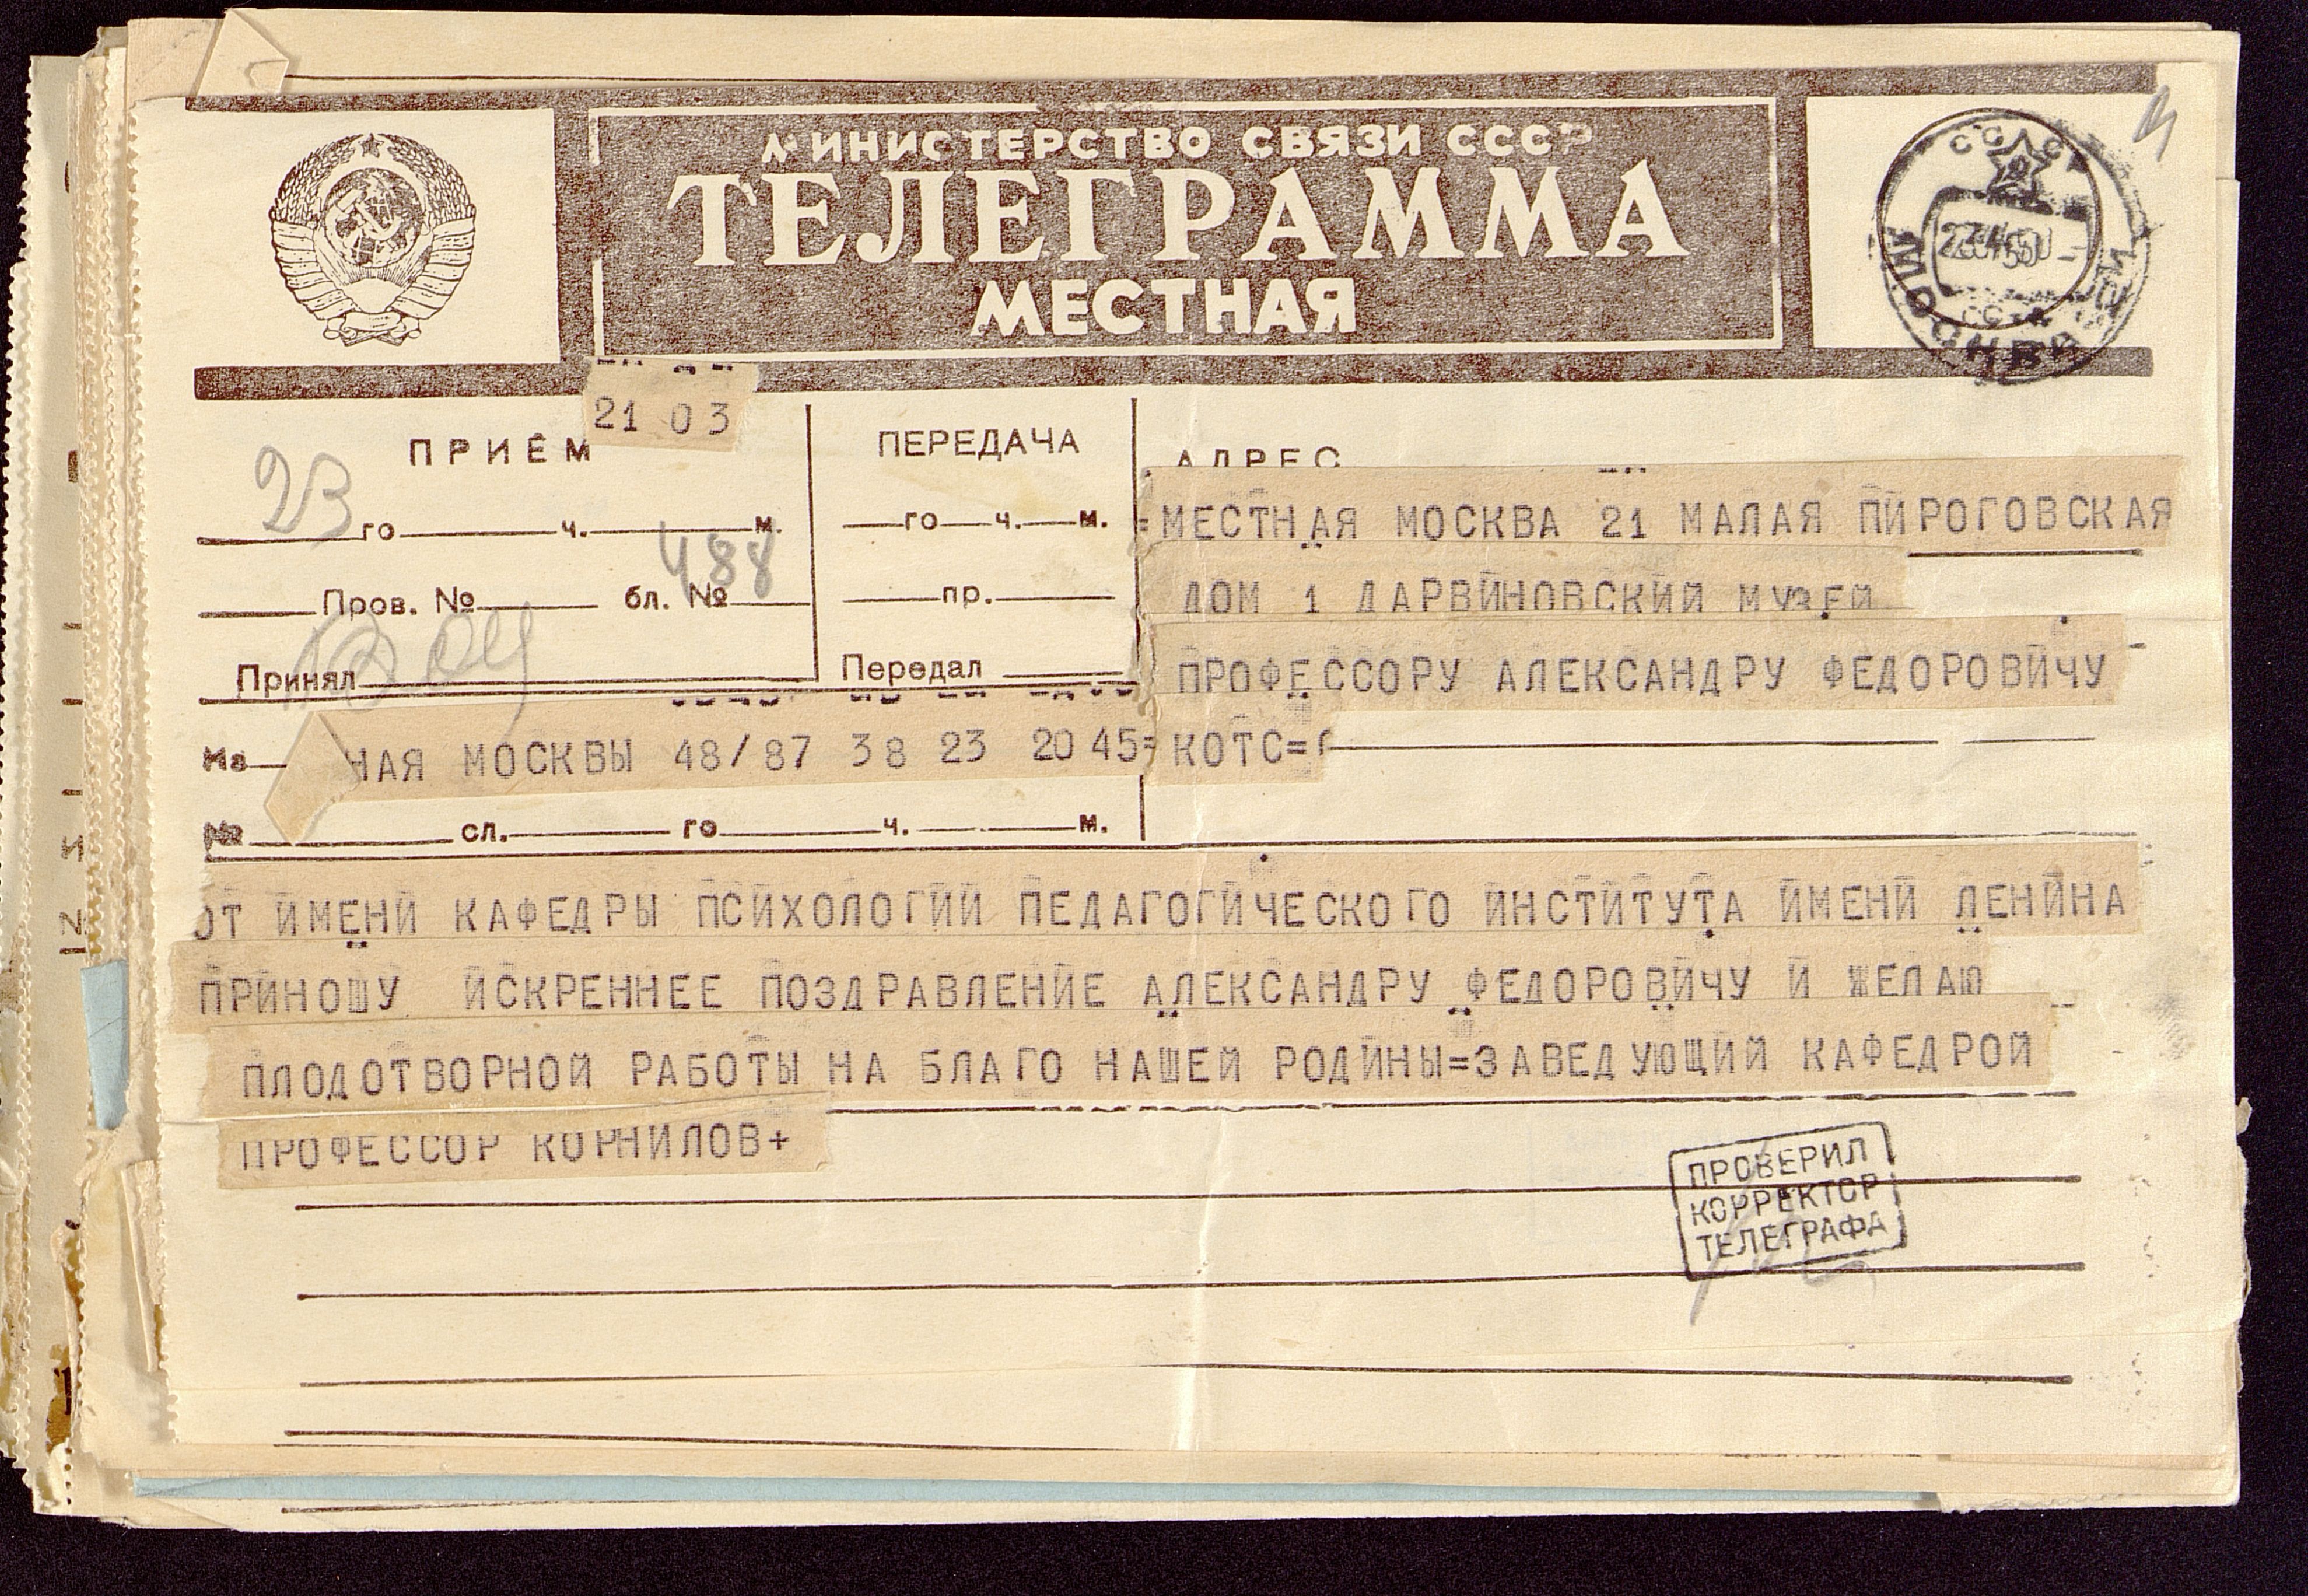 МИНИСТЕРСТВО СВЯЗИ СССР
ТЕЛЕГРАММА
МЕСТНАЯ
МОСКВА
21 03
ПРИЕМ
23 го ч. м.
488
Пров. № бл. №
Принял
ПЕРЕДАЧА
го ч. м.
пр.
Передал
АДРЕС
=МЕСТНАЯ МОСКВА 21 МАЛАЯ ПИРОГОВСКАЯ
ДОМ 1 ДАРВИНОВСКИЙ МУЗЕЙ
ПРОФЕССОРУ АЛЕКСАНДРУ ФЕДОРОВИЧУ
КОТС=
Из НАЯ МОСКВЫ 48/87 38 23 20 45=
№ сл. го ч. м.
ОТ ИМЕНИ КАФЕДРЫ ПСИХОЛОГИИ ПЕДАГОГИЧЕСКОГО ИНСТИТУТА ИМЕНИ ЛЕНИНА
ПРИНОШУ ИСКРЕННЕЕ ПОЗДРАВЛЕНИЕ АЛЕКСАНДРУ ФЕДОРОВИЧУ И ЖЕЛАЮ
ПЛОДОТВОРНОЙ РАБОТЫ НА БЛАГО НАШЕЙ РОДИНЫ=ЗАВЕДУЮЩИЙ КАФЕДРОЙ
ПРОФЕССОР КОРНИЛОВ+
ПРОВЕРИЛ
КОРРЕКТОР
ТЕЛЕГРАФА